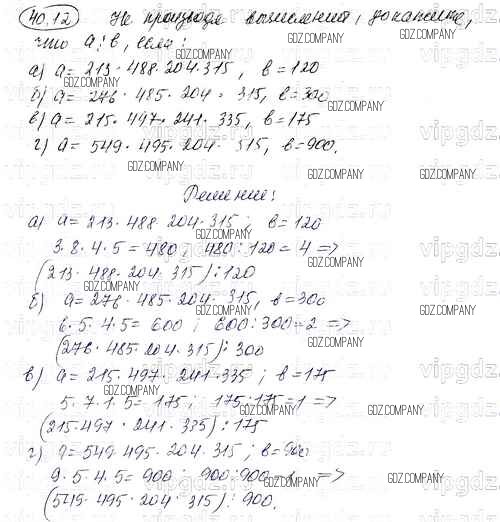 40.12 Не производя вычислений, докажите,
что a⋮b, если:
а) a = 213 · 488 · 204 · 315, b = 120
б) a = 276 · 485 · 204 · 315, b = 300
в) a = 215 · 497 · 241 · 335, b = 175
г) a = 549 · 495 · 204 · 315, b = 900.
Решение:
а) a = 213 · 488 · 204 · 315; b = 120
3 · 8 · 4 · 5 = 480; 480 : 120 = 4 =>
(213 · 488 · 204 · 315) ⋮ 120
б) a = 276 · 485 · 204 · 315, b = 300
6 · 5 · 4 · 5 = 600; 600 : 300 = 2 =>
(276 · 485 · 204 · 315) ⋮ 300
в) a = 215 · 497 · 241 · 335; b = 175
5 · 7 · 1 · 5 = 175; 175 : 175 = 1 =>
(215 · 497 · 241 · 335) ⋮ 175
г) a = 549 · 495 · 204 · 315; b = 900
9 · 5 · 4 · 5 = 900; 900 : 900 = 1 =>
(549 · 495 · 204 · 315) ⋮ 900.